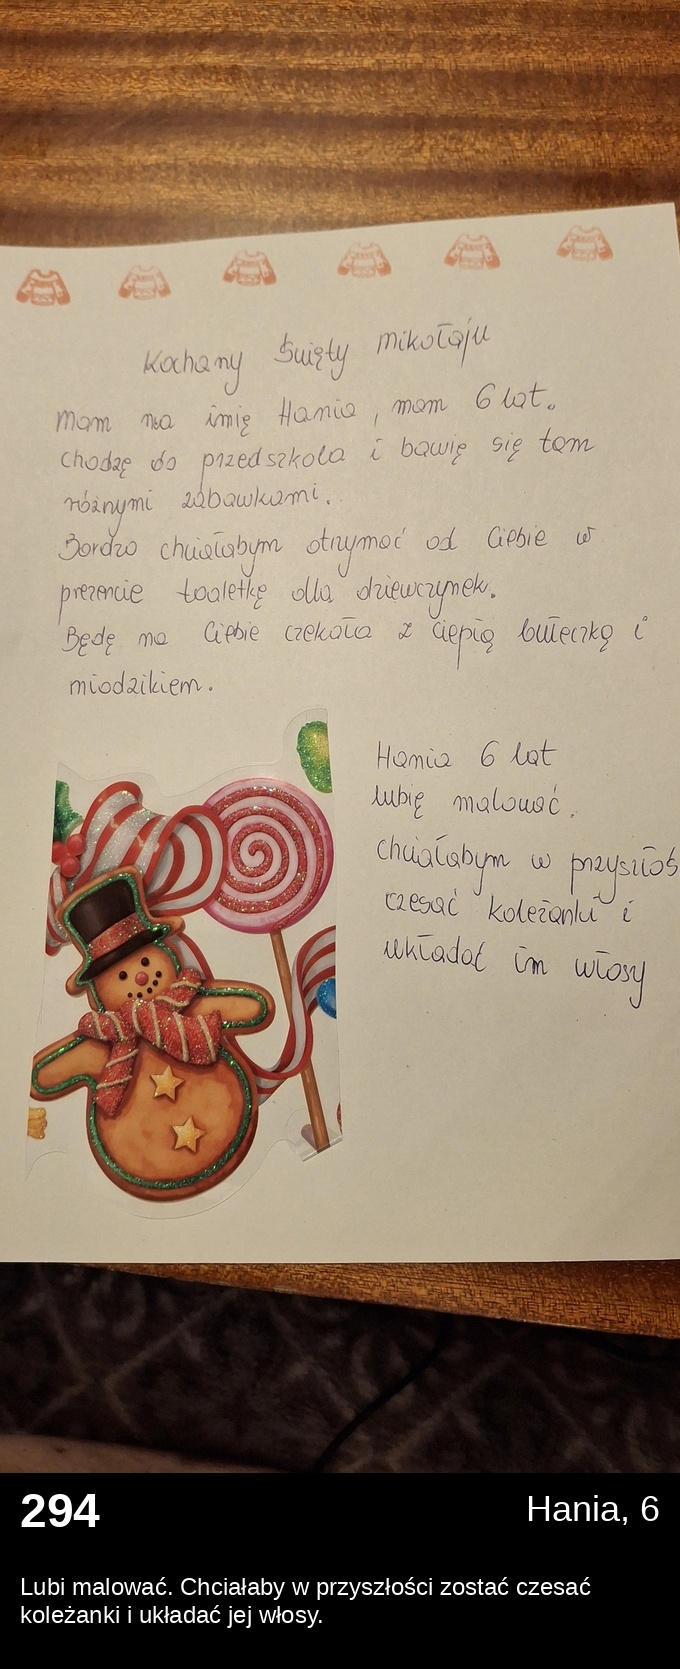 Kochany Święty Mikołaju
Mam na imię Hania, mam 6 lat.
chodzę do przedszkola i bawię się tam
różnymi zabawkami.
Bardzo chciałabym otrzymać od Ciebie w
prezencie toaletkę dla dziewczynek.
Będę na Ciebie czekała z ciepłą bułeczką i
miodzikiem.
Hania 6 lat
lubię malować.
chciałabym w przyszłoś
czesać koleżanki i
układać im włosy
294
Hania, 6
Lubi malować. Chciałaby w przyszłości zostać czesać
koleżanki i układać jej włosy.